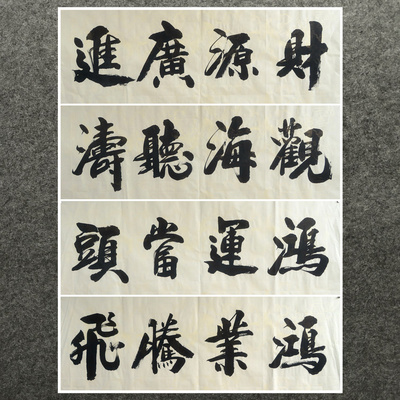 財源廣進
觀海聽濤
鴻運當頭
鴻業騰飛